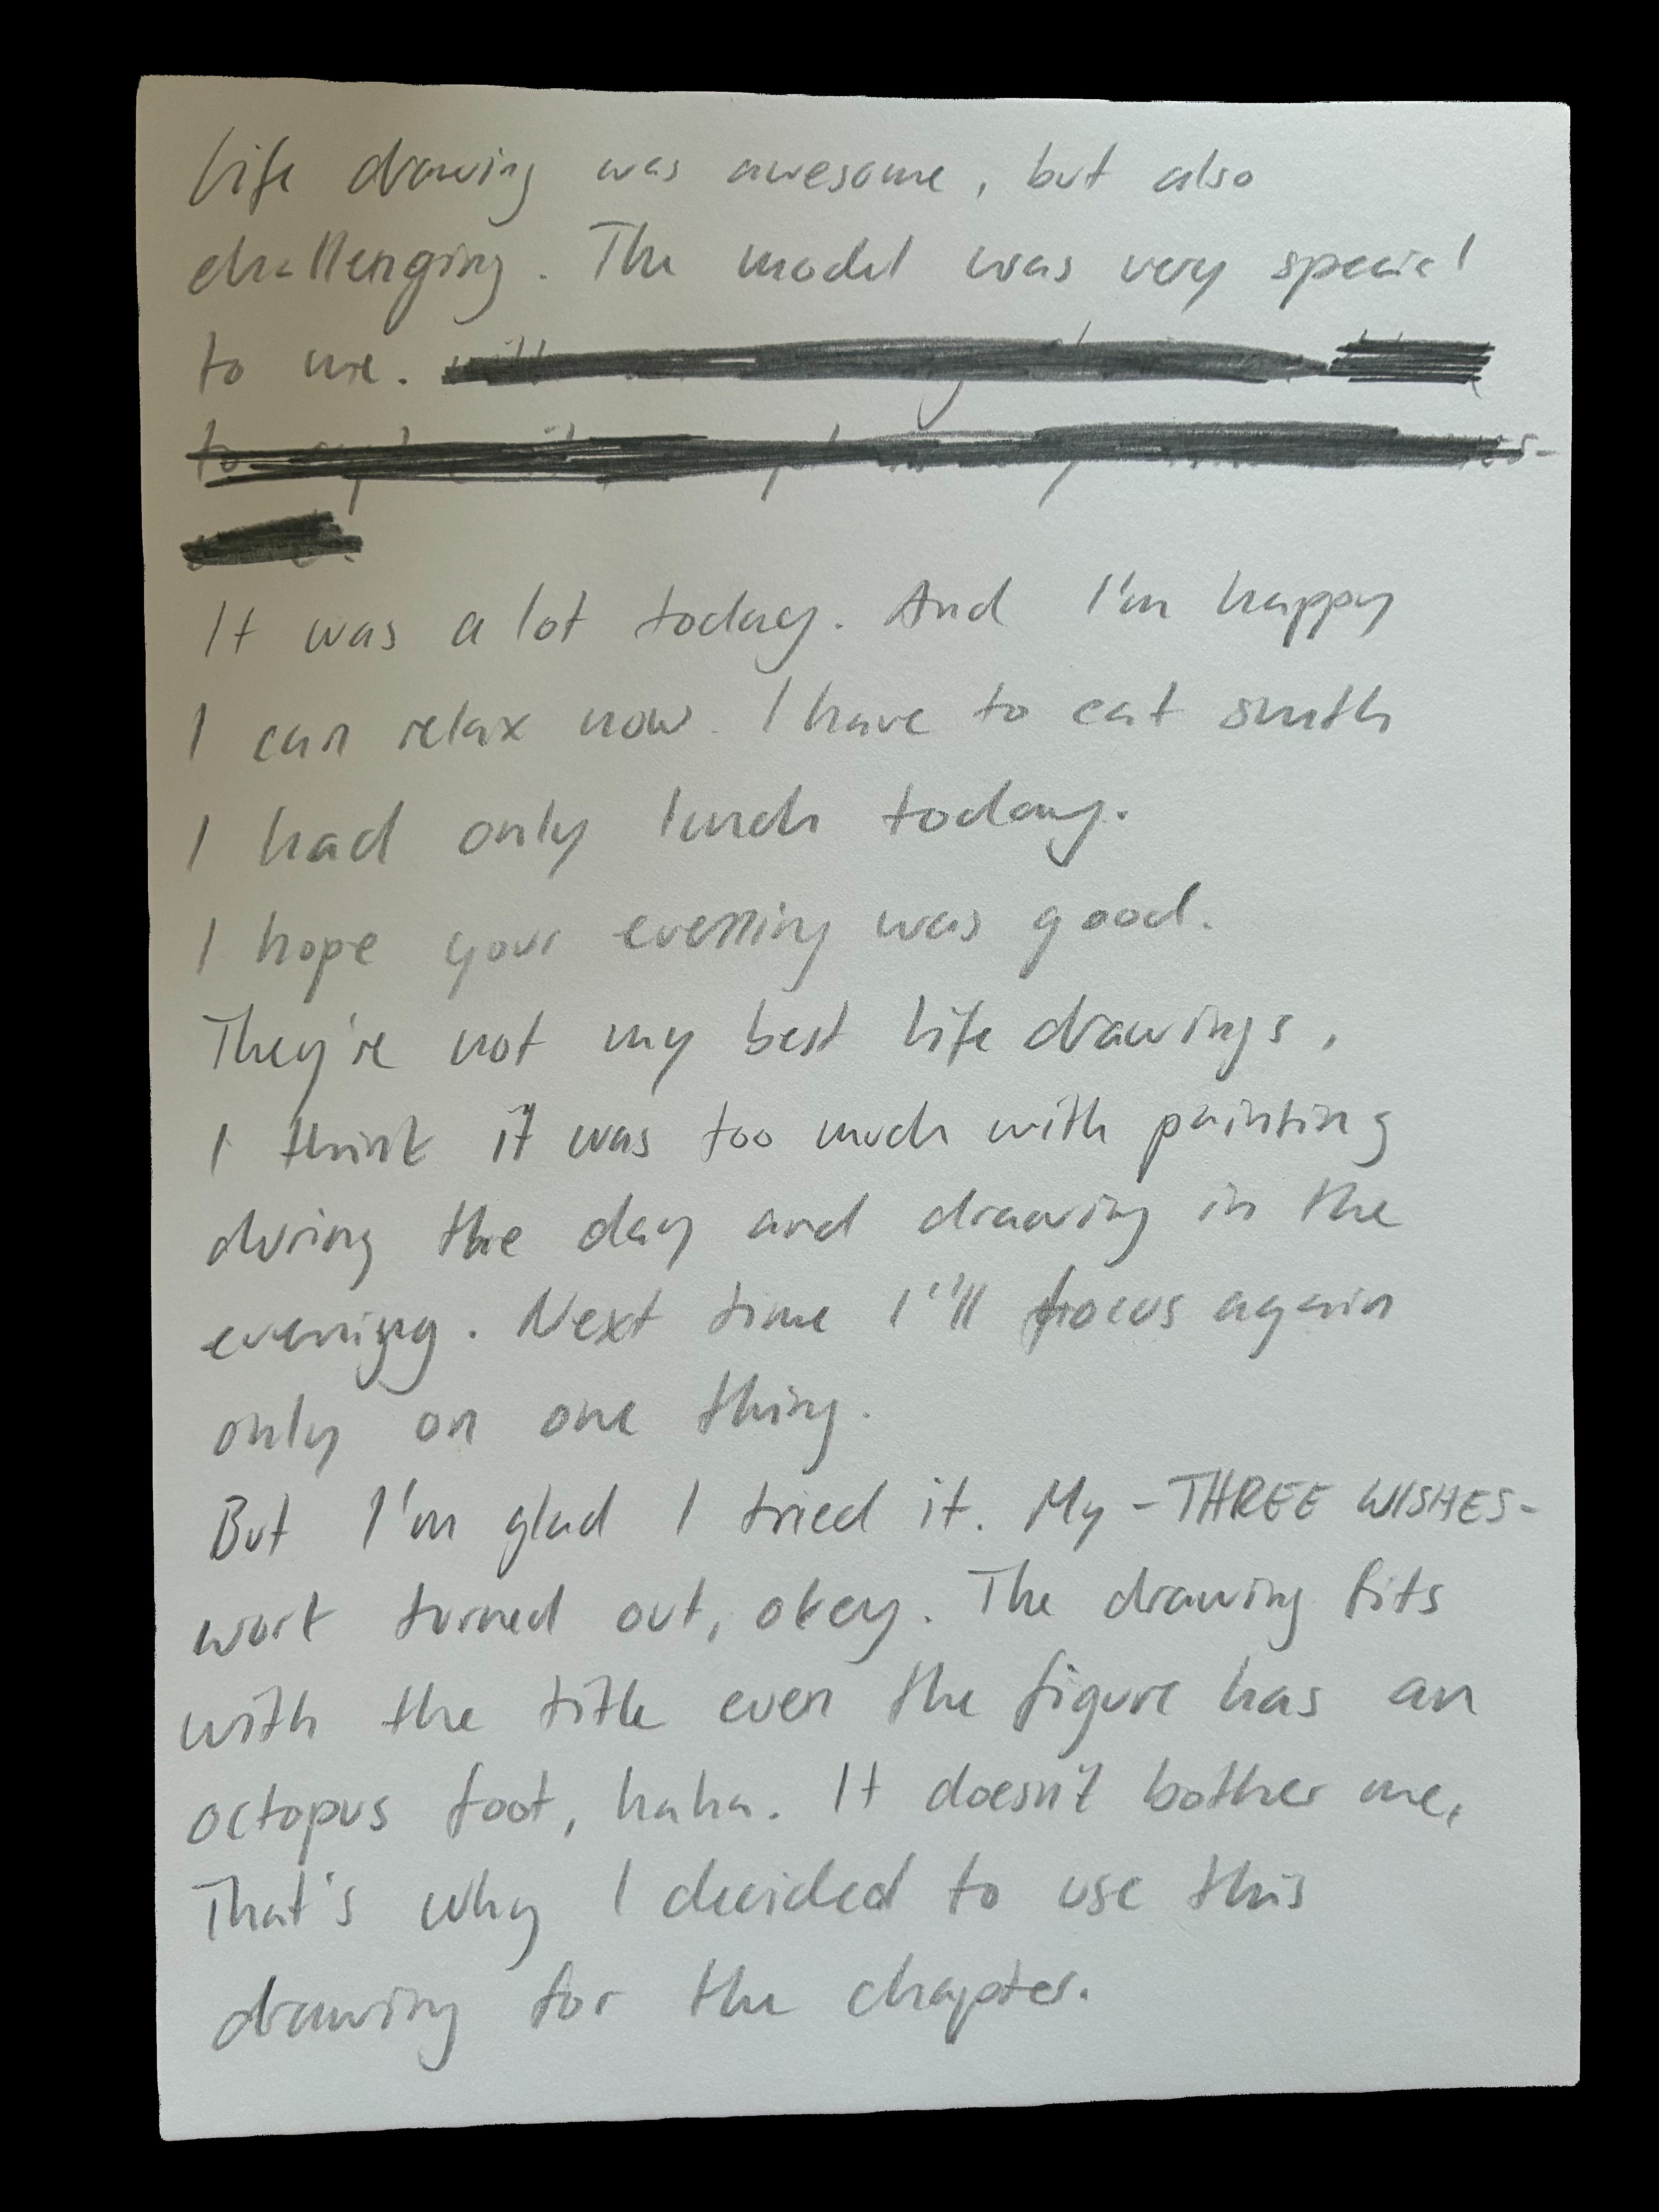 Life drawing was awesome, but also
challenging. The model was very special
to me.
It was a lot today. And I'm happy
I can relax now. I have to eat smth
I had only lunch today.
I hope your evening was good.
They're not my best life drawings,
I think it was too much with painting
during the day and drawing in the
evening. Next time I'll focus again
only on one thing.
But I'm glad I tried it. My -THREE WISHES-
work turned out, okey. The drawing fits
with the title even the figure has an
octopus foot, haha. It doesn't bother me,
That's why I decided to use this
drawing for the chapter.